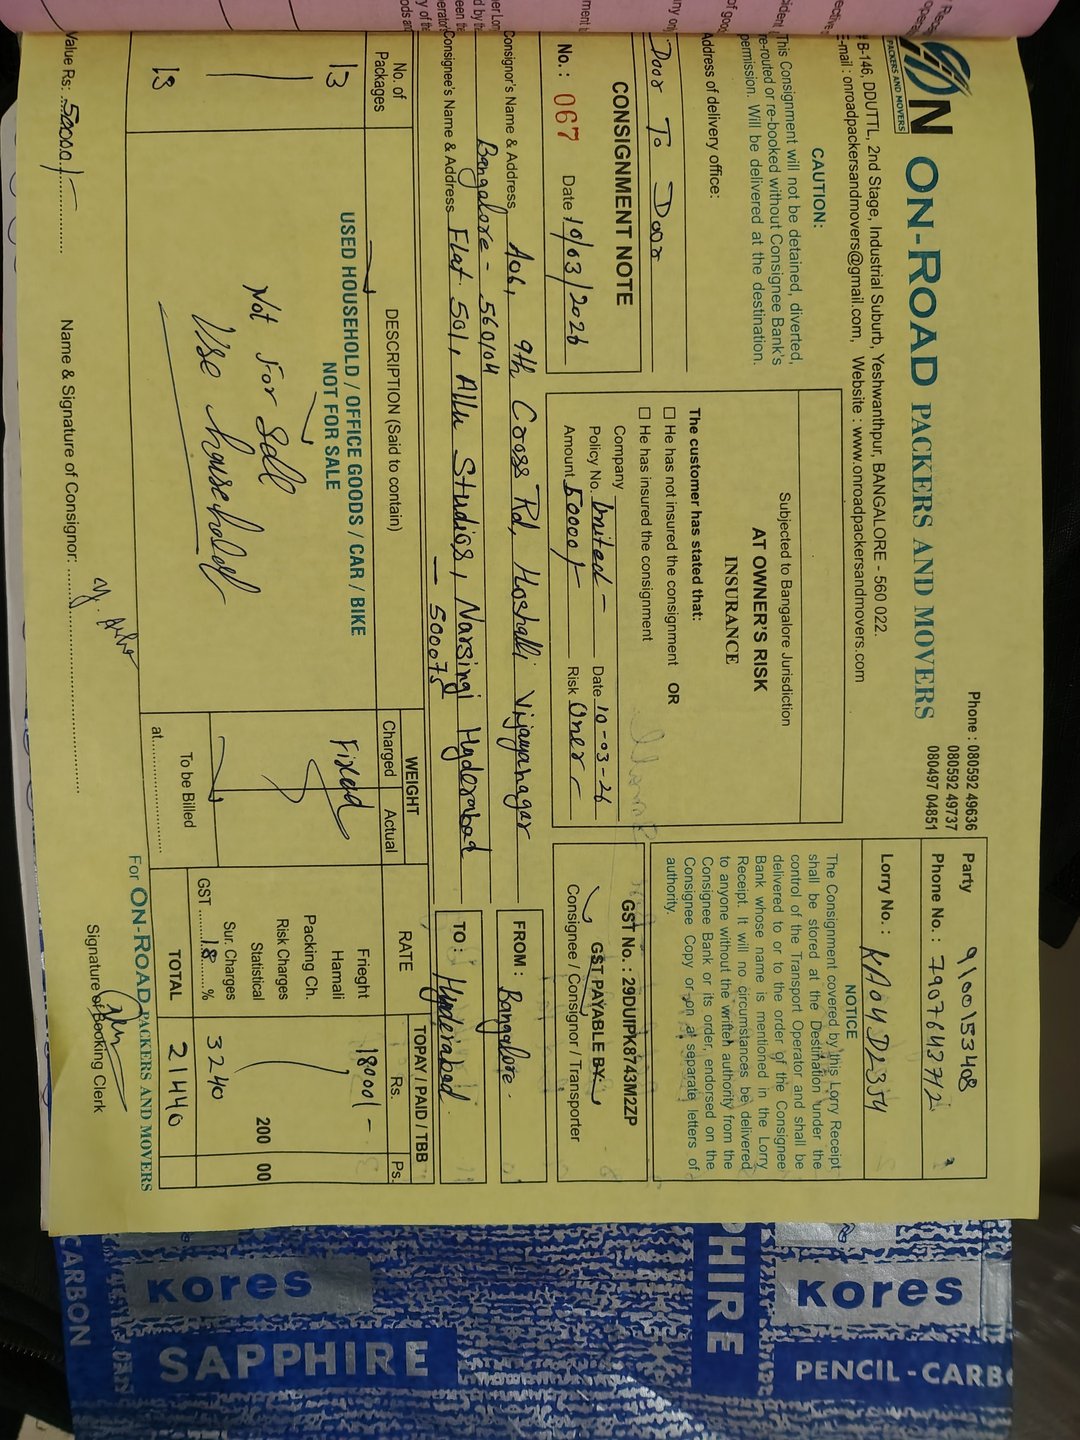 ON-ROAD PACKERS AND MOVERS
PACKERS AND MOVERS
# B-146, DDUTTL, 2nd Stage, Industrial Suburb, Yeshwanthpur, BANGALORE - 560 022.
E-mail : onroadpackersandmovers@gmail.com, Website : www.onroadpackersandmovers.com
Phone : 080592 49636
080592 49737
080497 04851
Party 9100153408
Phone No. : 7907643712
Lorry No. : KA04D2354
CAUTION:
This Consignment will not be detained, diverted,
re-routed or re-booked without Consignee Bank's
permission. Will be delivered at the destination.
Address of delivery office:
Door To Door
CONSIGNMENT NOTE
No. : 067 Date 10/03/2026
Subjected to Bangalore Jurisdiction
AT OWNER'S RISK
INSURANCE
The customer has stated that:
He has not insured the consignment OR
He has insured the consignment
Company
Policy No. United - Date 10-03-26
Amount 50000/- Risk Oner -
NOTICE
The Consignment covered by this Lorry Receipt
shall be stored at the Destination under the
control of the Transport Operator and shall be
delivered to or to the order of the Consignee
Bank whose name is mentioned in the Lorry
Receipt. It will no circumstances be delivered
to anyone without the written authority from the
Consignee Bank or its order, endorsed on the
Consignee Copy or on a separate letters of
authority.
GST No. : 29DUIPK8743M2ZP
GST PAYABLE BY:
Consignee / Consignor / Transporter
Consignor's Name & Address A06, 9th Cross Rd, Hoshalli Vijayanagar
Bangalore - 560104
FROM : Bangalore.
Consignee's Name & Address Flat 501, Allu Studios, Narsingi Hyderabad
- 500075
TO : Hyderabad.
No. of
Packages
DESCRIPTION (Said to contain)
WEIGHT
Charged Actual
RATE
TOPAY / PAID / TBB
Rs. Ps.
13
USED HOUSEHOLD / OFFICE GOODS / CAR / BIKE
NOT FOR SALE
Not For Sell
Use household
Fixed
Frieght 18000/-
Hamali
Packing Ch.
Risk Charges
Statistical 200 00
Sur. Charges
GST 18 % 3240
13
To be Billed
at
TOTAL 21440
Value Rs: 50000/-
Name & Signature of Consignor:
For ON-ROAD PACKERS AND MOVERS
Signature of Booking Clerk
Kores
SAPPHIRE
CARBON
PHIRE
Kores
PENCIL - CARBO